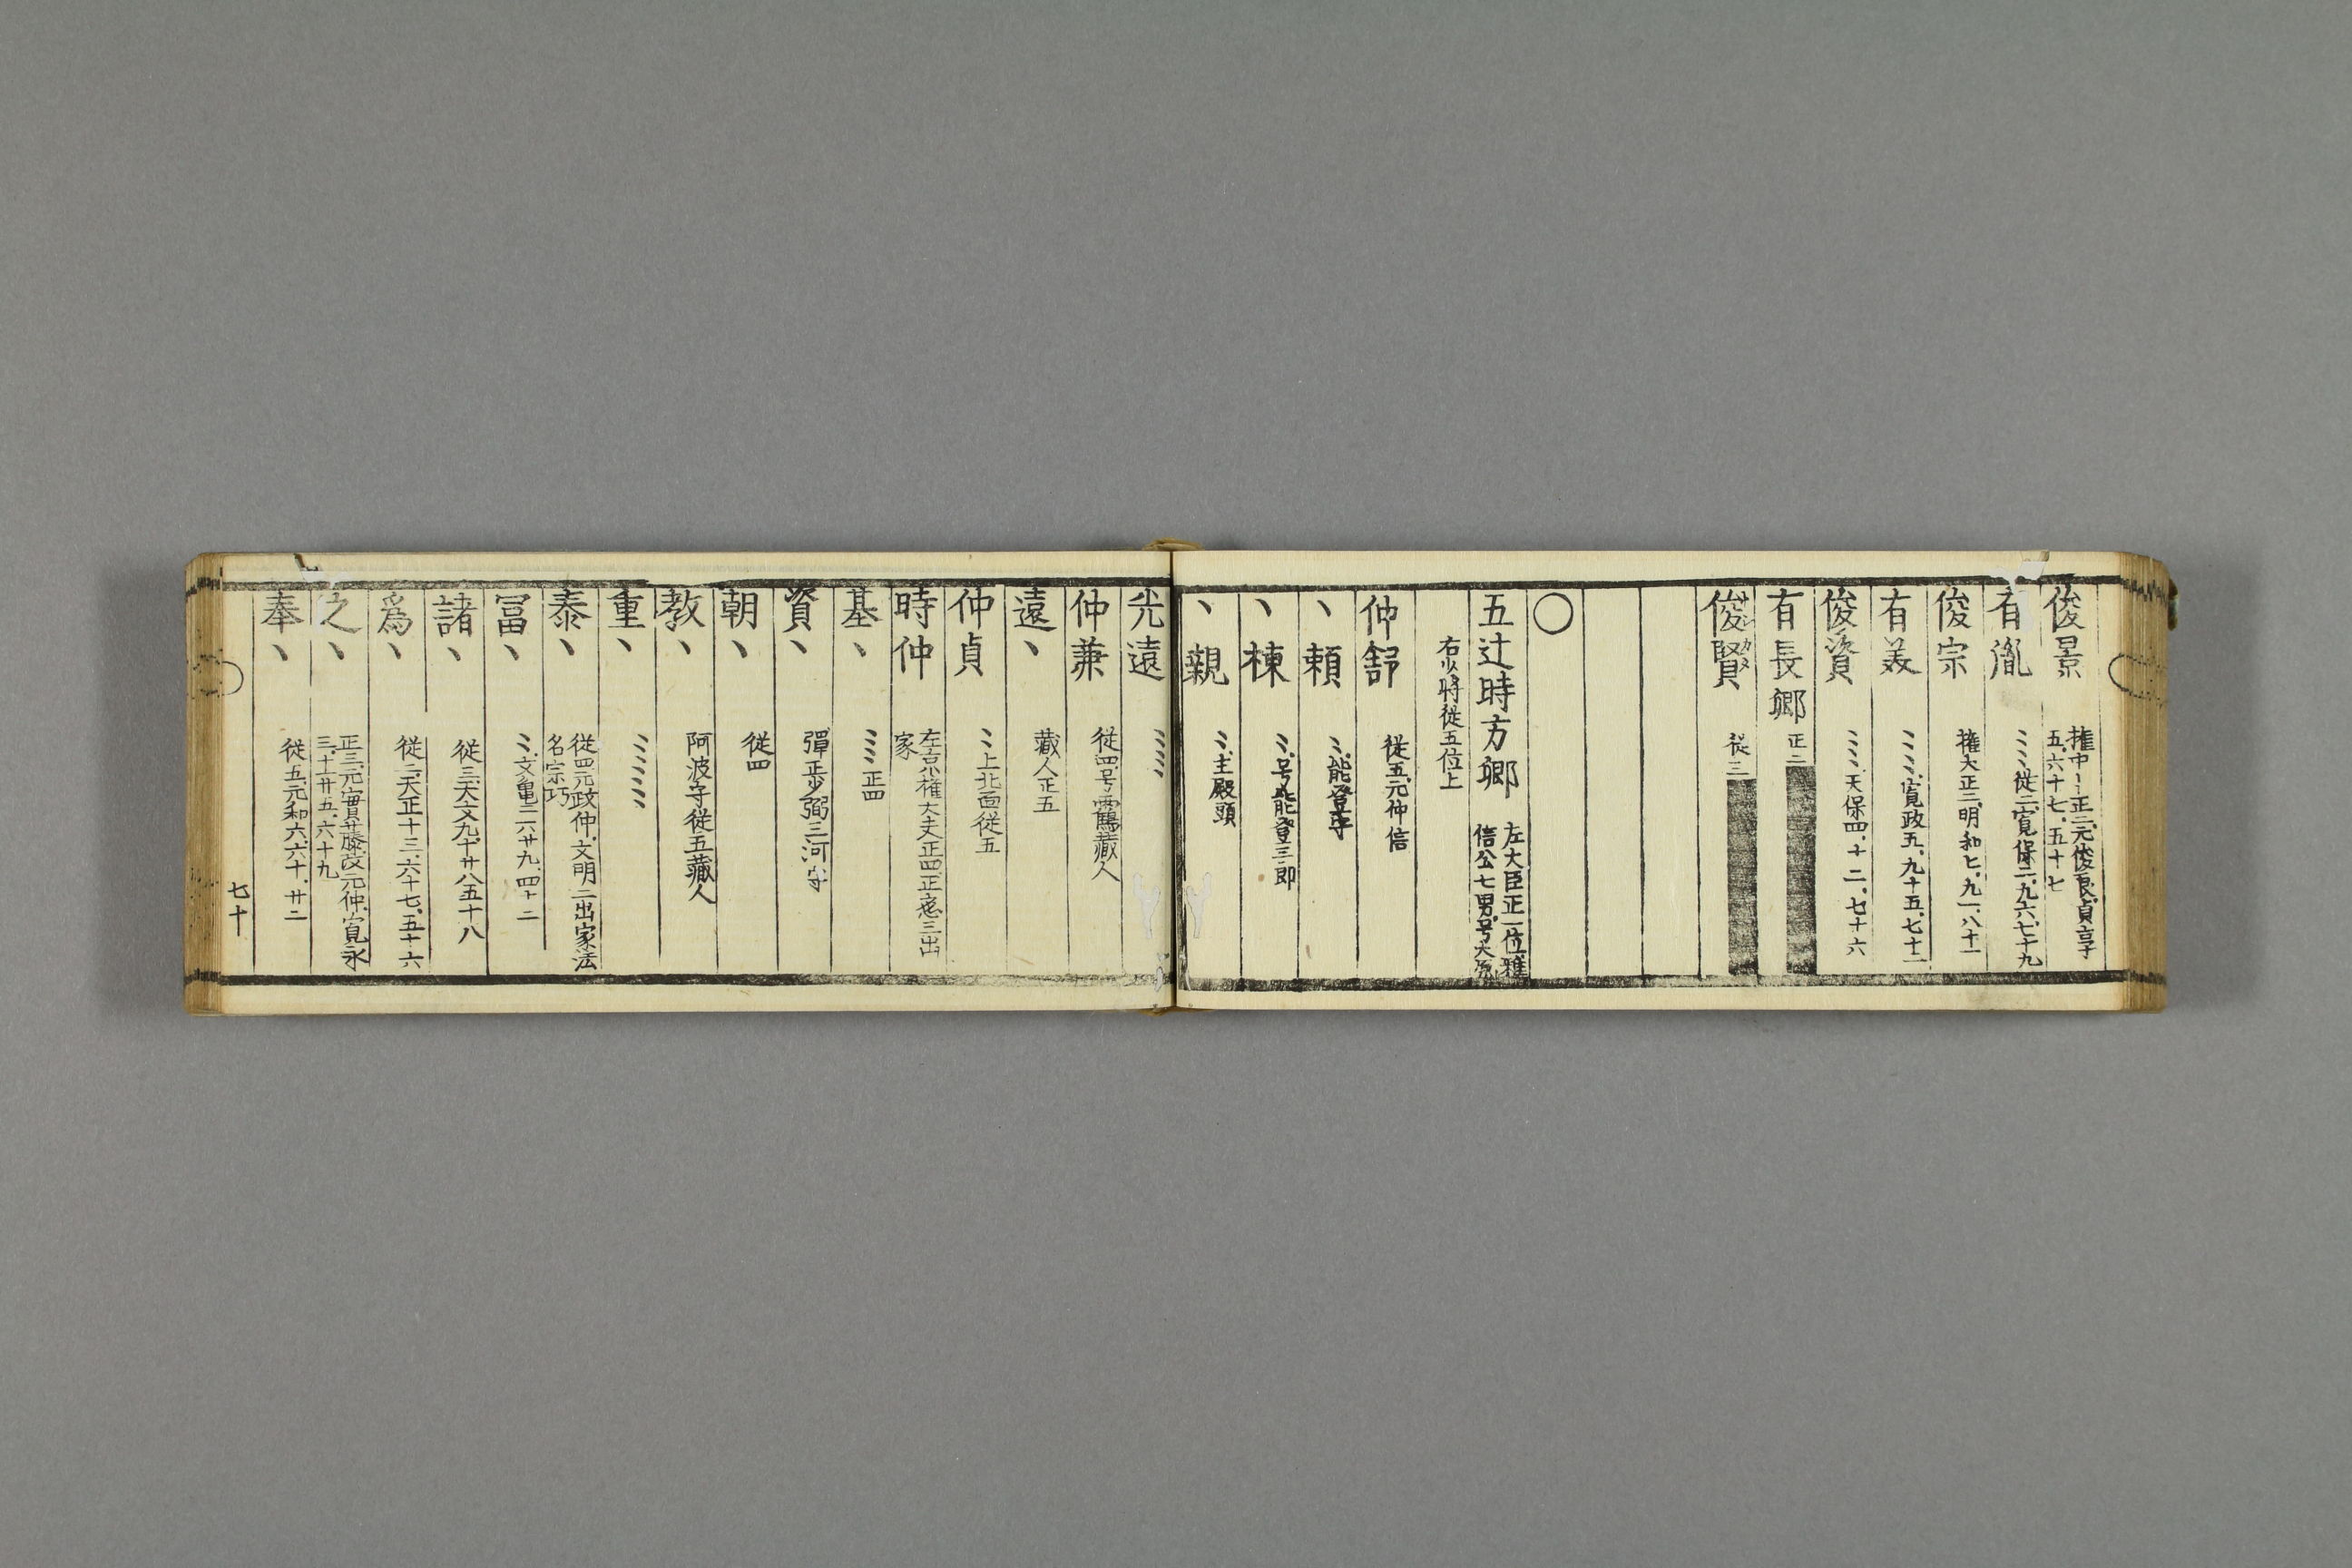 俊景 権中〻正二元俊良貞享
五、六十七、五十七
有胤 〻〻従二、寛保二、九六、七十九
俊宗 権大正二、明和七、九一、八十一
有美 〻〻〻、寛政五、九十五、七十一
俊資 〻〻〻、天保四、十二、七十六
有長卿 正二
俊賢 従三
〇
五辻時方卿 左大臣正一位雅
信公七男、号大
右少将従五位上
仲舒 従五、元仲信
丶頼 〻、能登守
丶棟 〻、号能登三郎
丶親 〻、主殿頭
光遠 〻〻〻
仲兼 従四、号 鶴蔵人
遠丶 蔵人正五
仲貞 〻上北面従五
時仲 左京権大夫正四、正應三出
家
基丶 〻〻正四
資丶 彈正少弼三河守
朝丶 従四
教丶 阿波守従五蔵人
重丶 〻〻〻〻
泰丶 従四元政仲、文明二出家法
名宗巧
冨丶 〻、文亀二六廿九、四十二
諸丶 従三、天文九、十廿八五十八
為丶 従二、天正十三、六十七、五十六
之丶 正三、元實藤改元仲、寛永
三、十一廿五、六十九
奉丶 従五、元和六、六十、廿二
七十